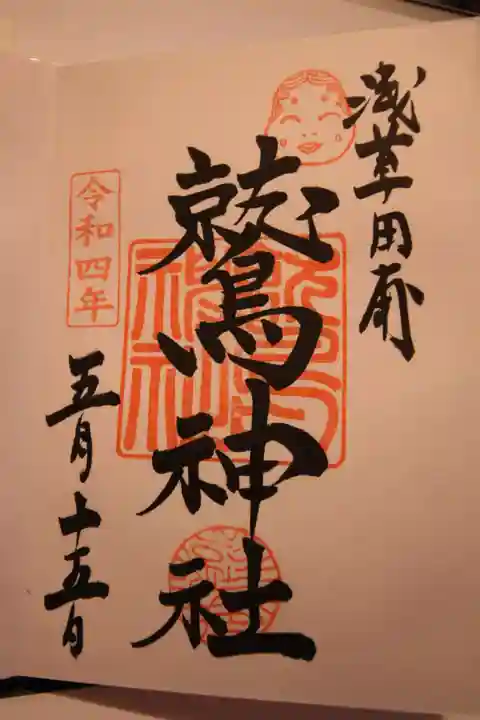 浅草田甫
鷲神社
鷲神社
令和四年
五月十五日